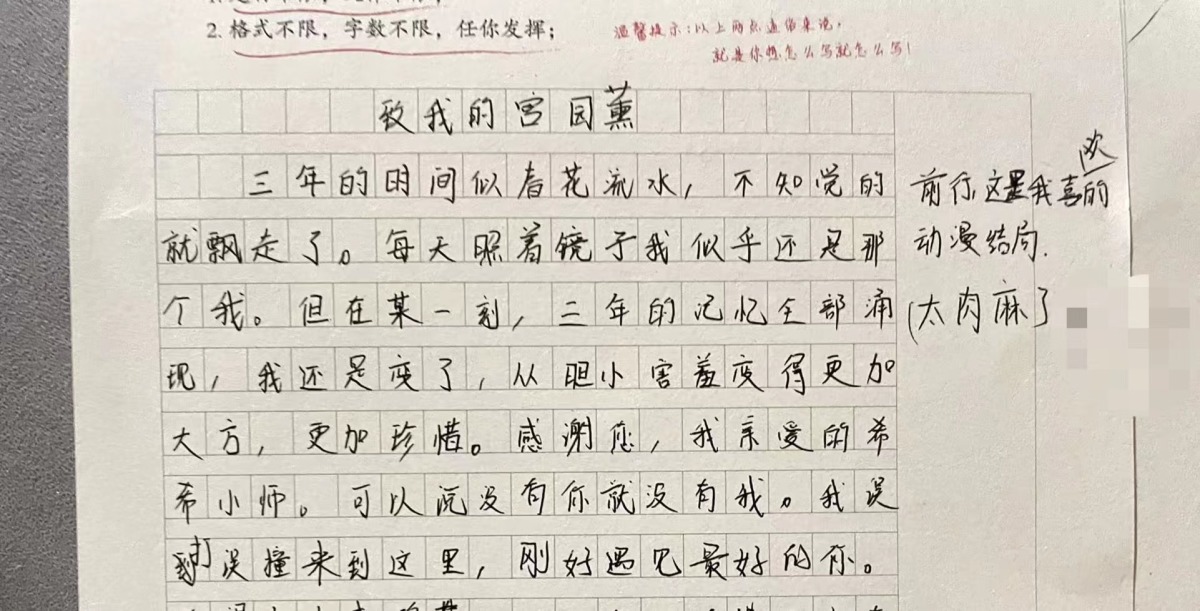 2. 格式不限，字数不限，任你发挥；
温馨提示：以上两点通俗来说，
就是你想怎么写就怎么写！
致我的宫园薰
三年的时间似春花流水，不知觉的
就飘走了。每天照着镜子我似乎还是那
个我。但在某一刻，三年的记忆全部涌
现，我还是变了，从胆小害羞变得更加
大方，更加珍惜。感谢您，我亲爱的希
希小师。可以说没有你就没有我。我误
打误撞来到这里，刚好遇见最好的你。
前行这是我喜欢的
动漫结局.
(太肉麻了